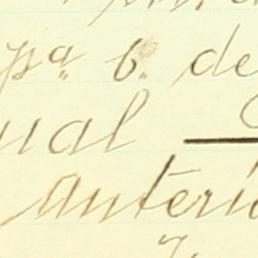 pª 6. de
ual
anteri